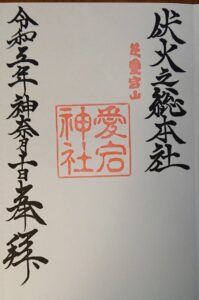 伏火之総本社
芝愛宕山
愛宕
神社
令和五年神奈月十一日奉拝